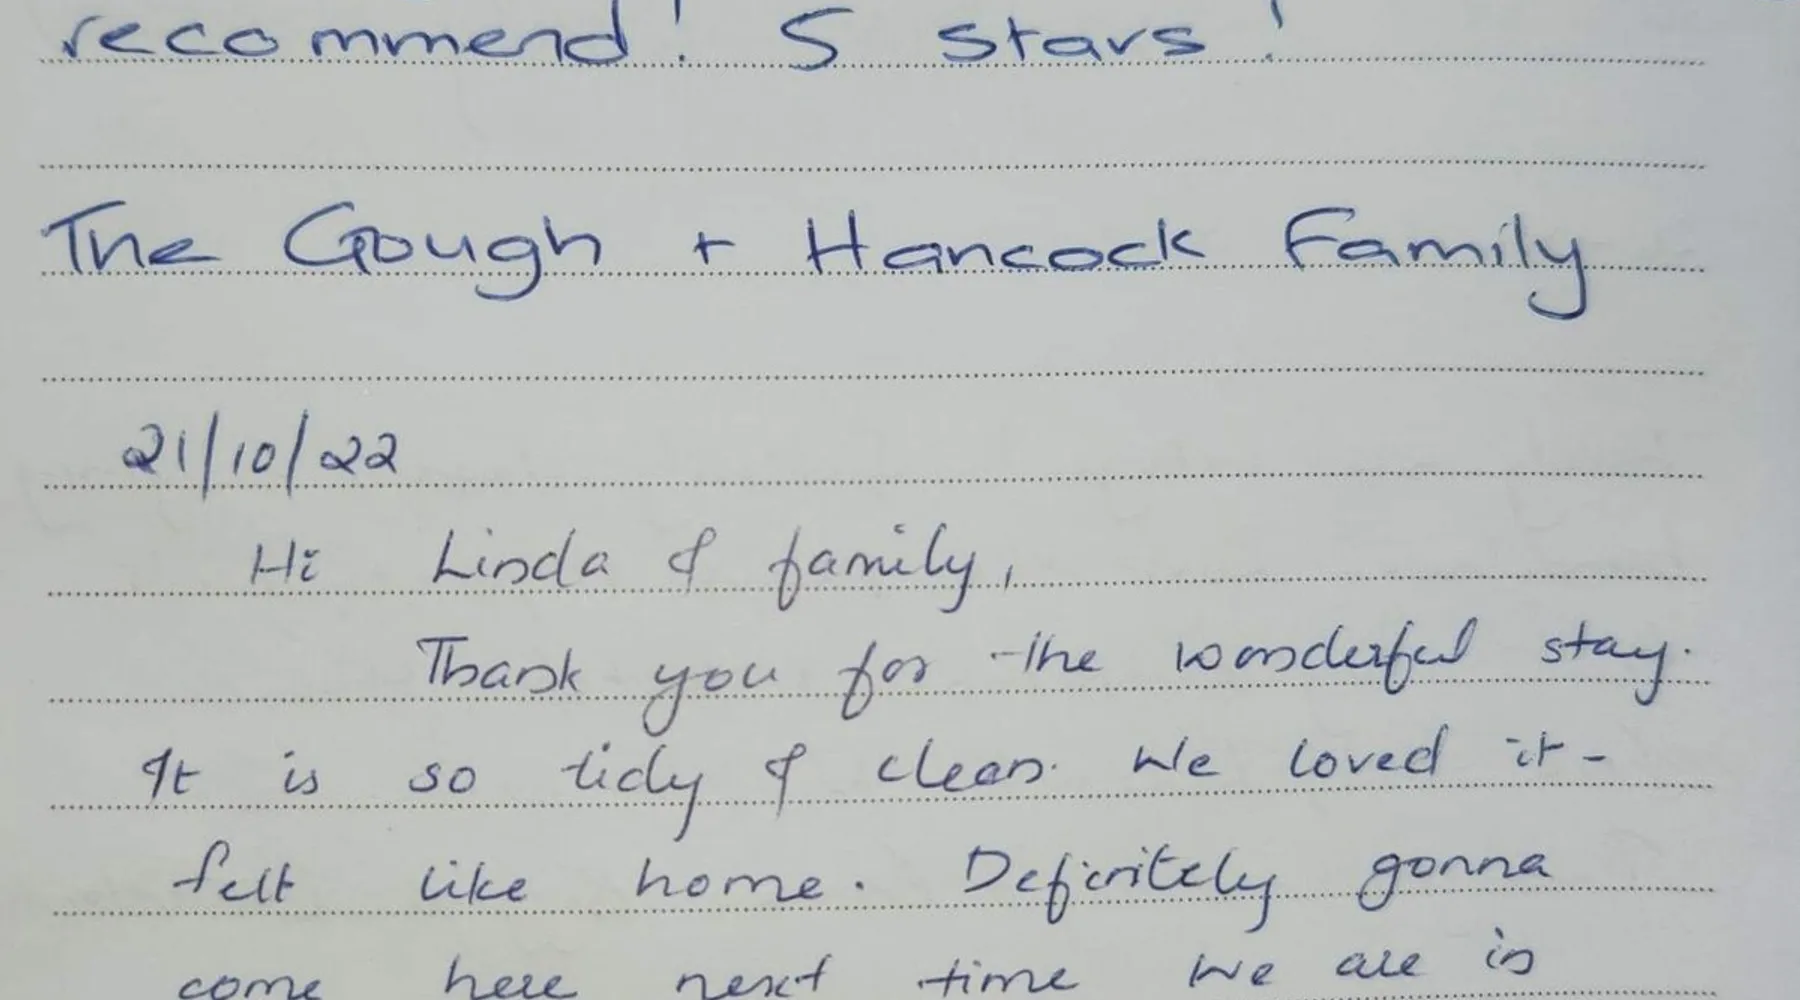 recommend! 5 stars!
The Gough + Hancock Family
21/10/22
Hi Linda & family,
Thank you for the wonderful stay.
It is so tidy & clean. We loved it -
felt like home. Definitely gonna
come here next time we are in